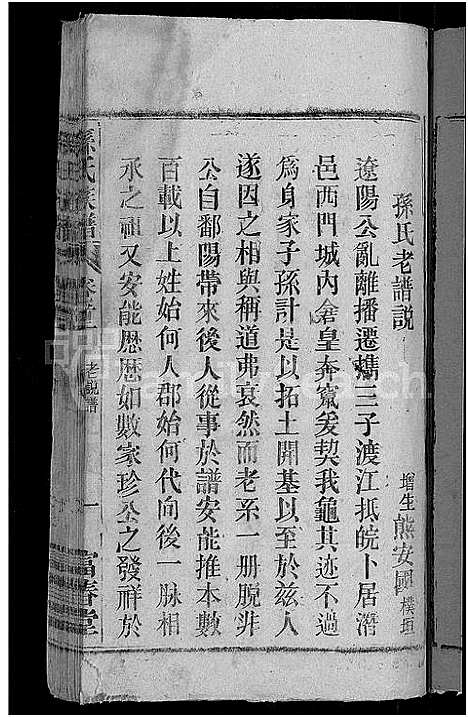 孫氏老譜說
增生熊安國樸垣
遼陽公亂離播遷攜三子渡江抵皖卜居潛
邑西門城內倉皇奔竄爰契我龜其迹不過
為身家子孫計是以拓土開基以至於兹人
遂因之相與稱道弗衰然而老系一册脫非
公自鄱陽帶來後人從事於譜安能推本數
百載以上姓始何人郡始何代向後一脉相
承之祖又安能歷歷如數家珍公之發祥於
孫氏族譜 卷首 老說譜 一 富春堂